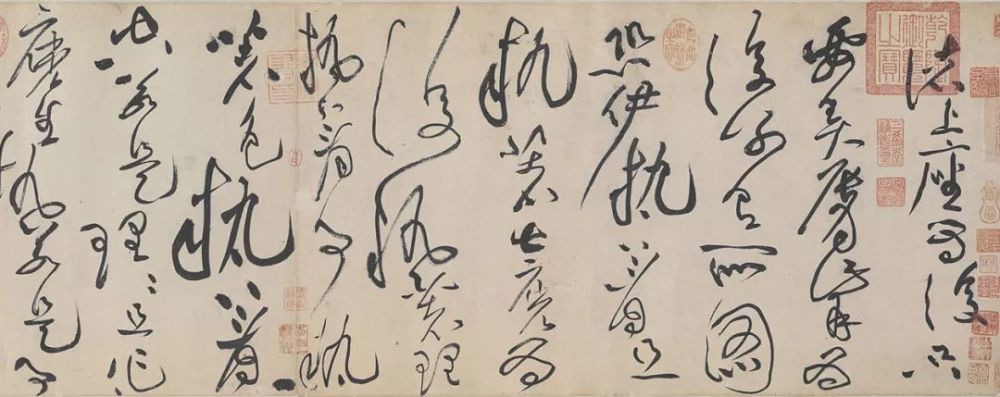 諸上座為復只
要弄脣觜為
復別有所圖
恐伊執著且
執著甚麼為
復執著理
執著事執
著色執著
空若是理理且作
麼生執若是事